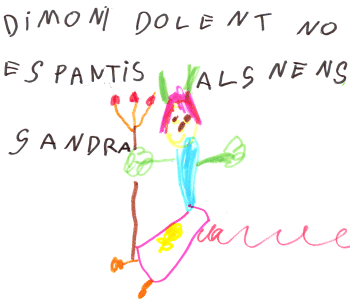 DIMONI DOLENT NO
ESPANTIS ALS NENS
SANDRA